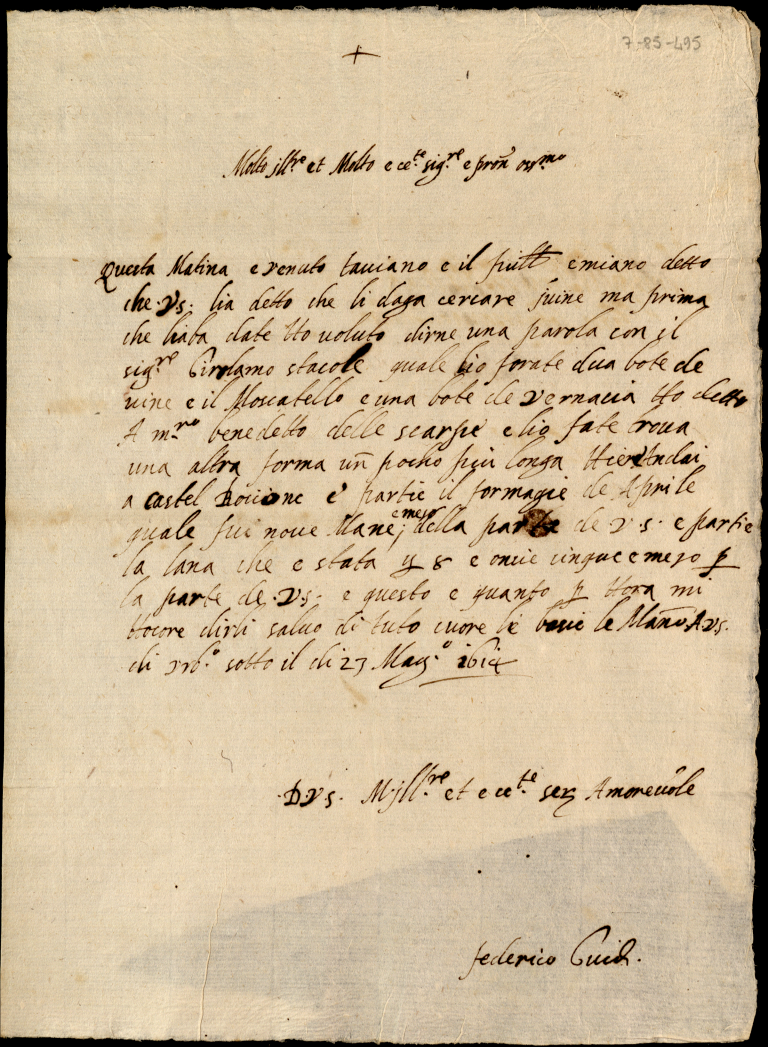 7-85-495
+
Molto jll.re et Molto ecc.te sig.re e pron oss.mo
Questa Matina e venuto taviano e il emiano detto
che .v.s. lia detto che li daga cercare ma prima
che liaba date Ho voluto dirne una parola con il
sig.re Girolamo stacole quale lio forate dua bote de
vine e il Moscatello e una bote de vernacia Ho detto
A m.ro benedetto delle scarpe e lio fate trova
una altra forma un pocho piu longa Hier Andai
a Castel Boccione e partie il formagie de Aprile
quale fu nove Mane e meso della parte de .v.s. e partie
la lana che e stata 8 e oncie cinque e mezo p
la parte de .v.s. e questo e quanto p Hora mi
Hocore dirli salvo di tuto cuore le basie le Mano A v.s.
di vrb.o sotto il di 23 Mag.o 1614
.D.V.S. M.jll.re et ecc.te ser Amorevole
federico Guid.